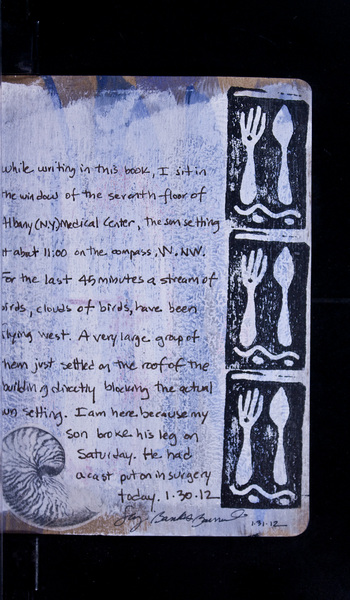 While writing in this book, I sit in
the window of the seventh floor of
Albany (NY) Medical Center, the sun setting
at about 11:00 on the compass, W. NW.
For the last 45 minutes a stream of
birds, clouds of birds, have been
flying west. A very large group of
them just settled on the roof of the
building directly blocking the actual
sun setting. I am here because my
son broke his leg on
Saturday. He had
a cast put on in surgery
today. 1.30.12
Banks
1.31.12